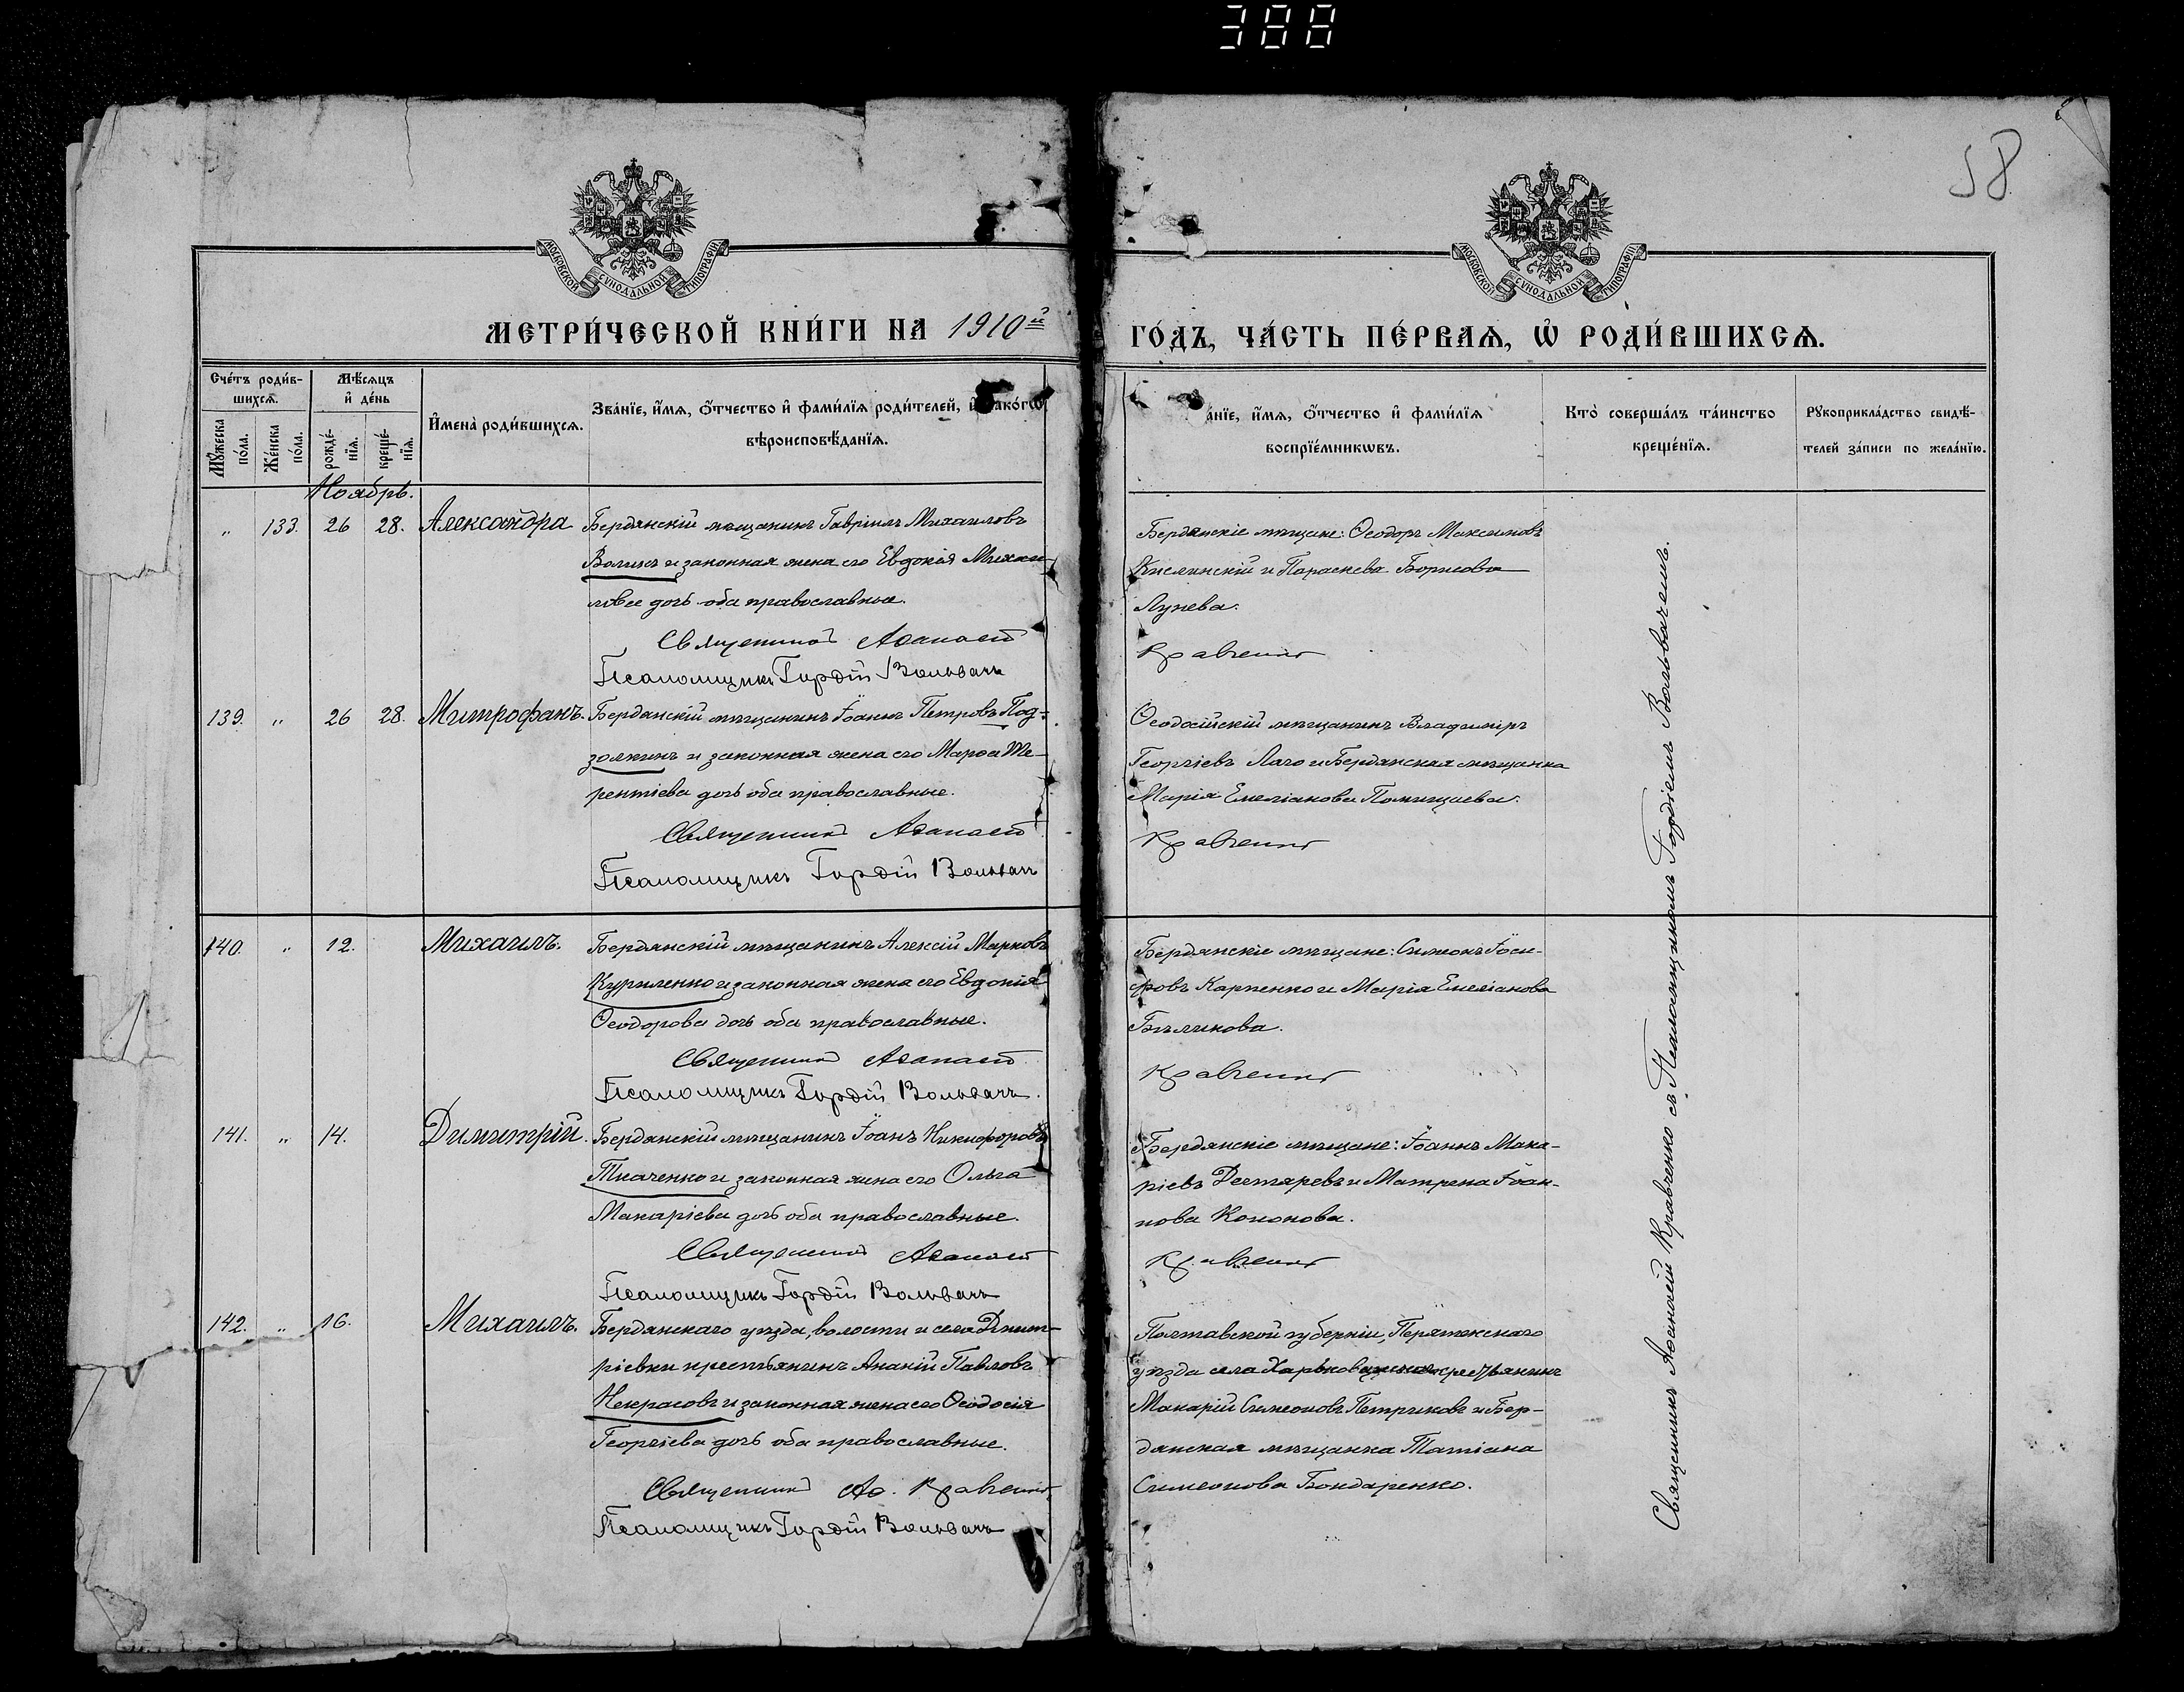 388
58
МОСКОВСКОЙ СѴНОДАЛЬНОЙ ТИПОГРАФІИ
МОСКОВСКОЙ СѴНОДАЛЬНОЙ ТИПОГРАФІИ
МЕТРИ́ЧЕСКОЙ КНИ́ГИ НА 1910й
ГО́ДЪ, ЧА́СТЬ ПЕ́РВАѦ, Ѡ҆ РОДИ́ВШИХСѦ.
Сче́тъ роди́в-
шихсѧ.
Мꙋ́жеска по́ла.
Же́нска по́ла.
Мѣ́сѧцъ
и҆ де́нь
рожде́-нїѧ.
креще́-нїѧ.
И҆мена̀ роди́вшихсѧ.
Зва́нїе, и҆́мѧ, ѻ҆́тчество и҆ фами́лїѧ роди́телей, и҆ како́гѡ
вѣроисповѣ́данїѧ.
а́нїе, и҆́мѧ, ѻ҆́тчество и҆ фами́лїѧ
воспрїе́мникѡвъ.
Кто̀ соверша́лъ та́инство
креще́нїѧ.
Рꙋкоприкла́дство свидѣ́-
телей за́писи по жела́нїю.
Ноябрь.
" 133. 26 28. Александра
Бердянскій мѣщанинъ Гавріилъ Михаиловъ
Воликъ и законная жена его Евдокія Михаи-
лова дочь оба православные.
Священникъ Аѳанасій
Псаломщикъ Гордій Вольвачъ
Бердянскіе мѣщане: Ѳеодоръ Максимовъ
Кислинскій и Параскева Борисова
Лунева.
Кравченко
139. " 26 28. Митрофанъ.
Бердянскій мѣщанинъ Іоаннъ Петровъ Под-
золкинъ и законная жена его Марѳа Те-
рентіева дочь оба православные.
Священникъ Аѳанасій
Псаломщикъ Гордій Вольвачъ
Ѳеодосійскій мѣщанинъ Владиміръ
Георгіевъ Лаго и Бердянская мѣщанка
Марія Емеліанова
Кравченко
140. " 12. Михаилъ.
Бердянскій мѣщанинъ Алексій Марковъ
Куриленко и законная жена его Евдокія
Ѳеодорова дочь оба православные.
Священникъ Аѳанасій
Псаломщикъ Гордій Вольвачъ.
Бердянскіе мѣщане: Симеонъ Іоси-
фовъ Карпенко и Марія Емеліанова
Бѣликова.
Кравченко
141. " 14. Димитрій.
Бердянскій мѣщанинъ Іоанъ Никифоровъ
Ткаченко и законная жена его Ольга
Макаріева дочь оба православные.
Священникъ Аѳанасій
Псаломщикъ Гордій Вольвачъ
Бердянскіе мѣщане: Іоаннъ Мака-
ріевъ Дегтяревъ и Матрена Іоан-
нова Кононова.
Кравченко
142. " 16. Михаилъ.
Бердянскаго уѣзда, волости и села Дмит-
ріевки крестьянинъ Ананій Павловъ
Некрасовъ и законная жена его Ѳеодосія
Георгіева дочь оба православные.
Священникъ Аѳ. Кравченко
Псаломщикъ Гордій Вольвачъ
Полтавской губерніи, Пирятинскаго
уѣзда села крестьянинъ
Макарій Симеоновъ Петриковъ и Бер-
дянская мѣщанка Татіана
Симеонова Бондаренко.
Священникъ Аѳанасій Кравченко съ Псаломщикомъ Гордіемъ Вольвачемъ.